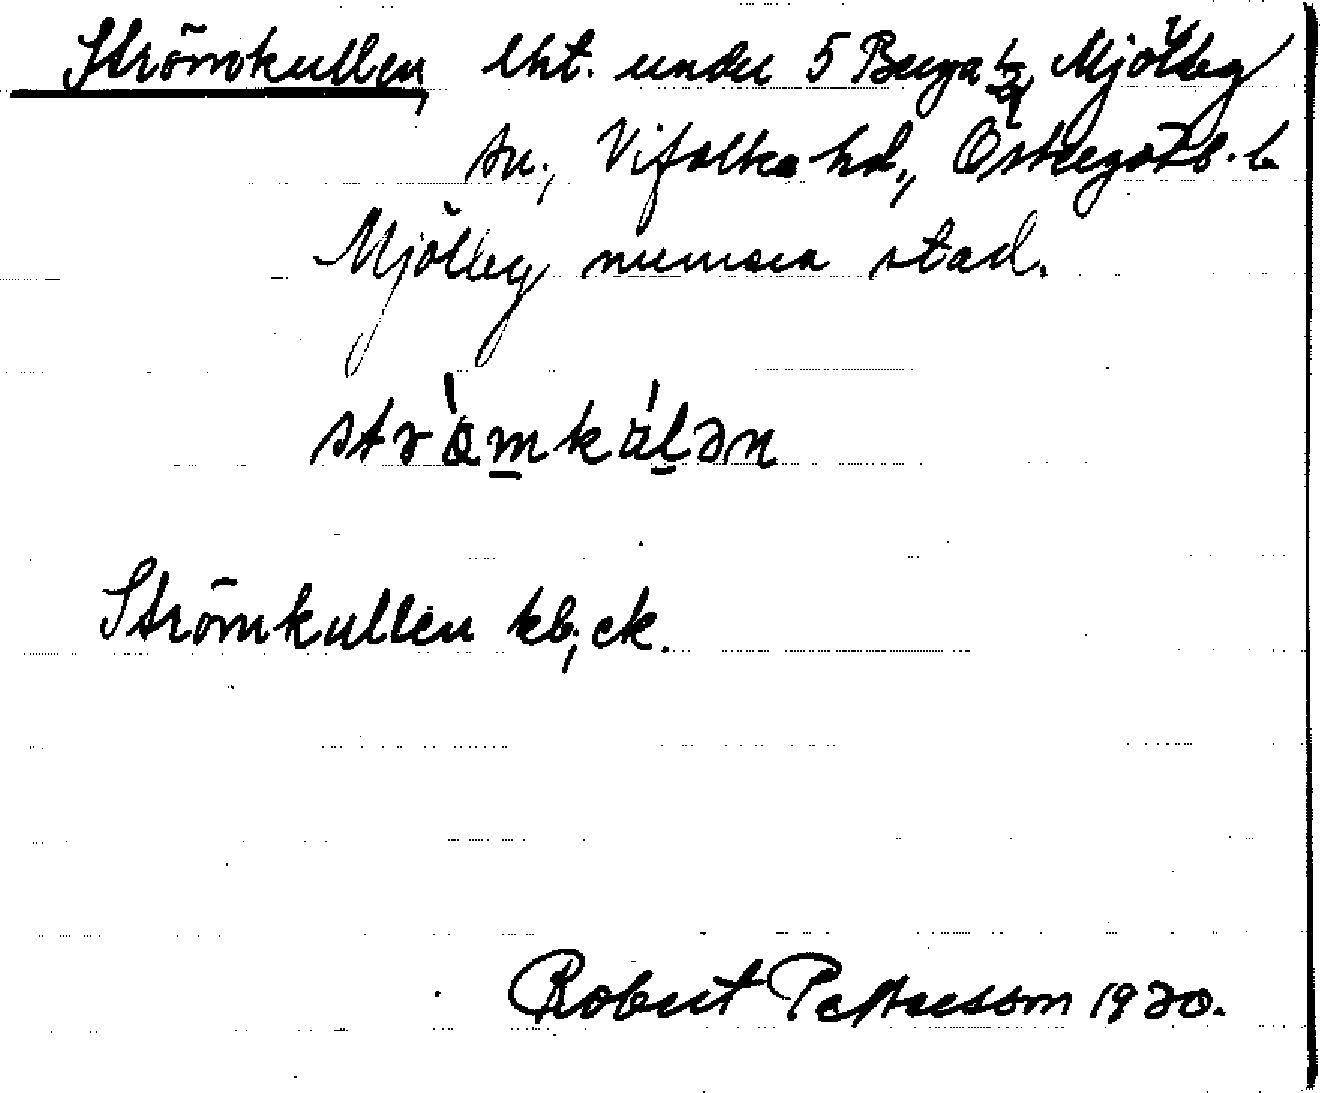 Strömkullen, lht. under 5 Berga ½, Mjölby
sn., Vifolka hd., Östergötl. l.
Mjölby numera stad.
Strömkullen kb; ek.
Robert Pettersson 1930.